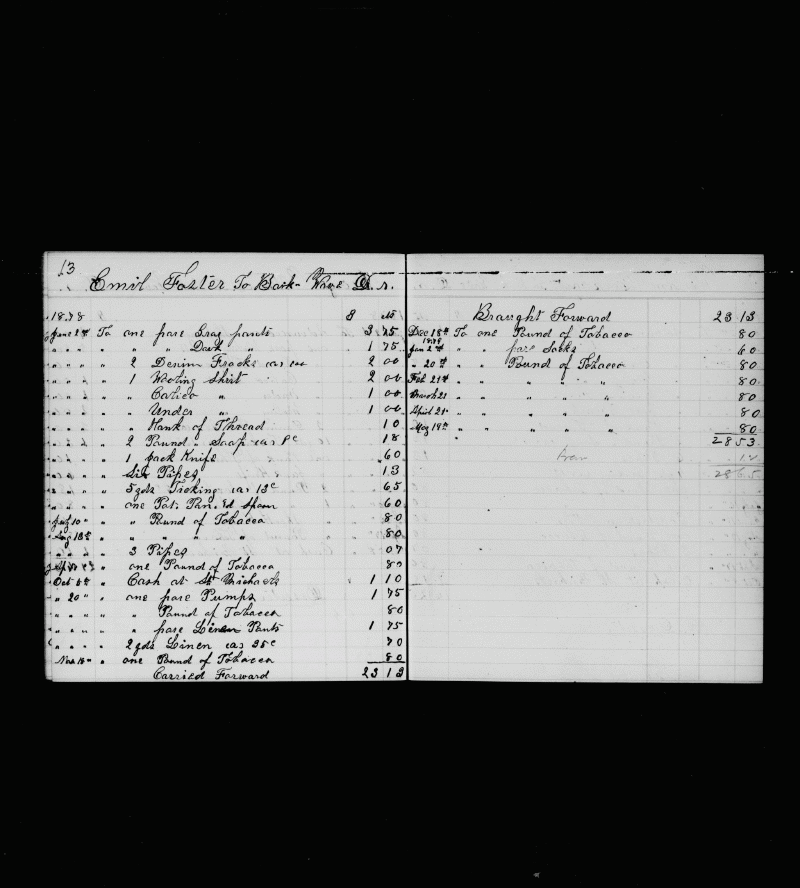 13
Emil Foster To Bark Wine Dr.
1878 $ cts
June 2nd To one pare Gray pants 3 75
" " " " " " Dark " 1 75
" " " " 2 Denim Frocks 2 00
" " " " 1 Woting Shirt 2 00
" " " " " Calico " 1 00
" " " " " Under " 1 00
" " " " " Hank of Thread 10
" " " " 2 Pound " Soap 18
" " " " 1 Jack Knife 60
" " " " Six Pipes 13
" " " " 5 yds Ticking as 13c 65
" " " " one Pat. Pan 60
July 10 " " " Pound of Tobacco 80
Aug 18th " " " " " 80
" " " " 3 Pipes 07
one Pound of Tobacco 80
Oct 5th " Cash at St Michaels 1 10
" 20 " " one pare Pumps 1 75
" " " " " Pound of Tobacco 80
" " " " " pare Linen Pants 1 75
" " " " 2 yds Linen as 35c 70
Nov 18 " " one Pound of Tobacco 80
Carried Forward 23 13
Braught Forward 23 13
Dec 18th To one Pound of Tobacco 80
1879
Jan 2nd " " pare Socks 60
" 20th " " Pound of Tobacco 80
Feb 21st " " " " " 80
March 21 " " " " " 80
April 21 " " " " " 80
May 18th " " " " " 80
28 53
12
28 65